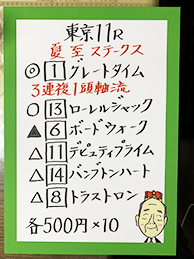 東京11R
夏至ステークス
◎1グレートタイム
3連複1頭軸流
○13ローレルジャック
▲6ボードウォーク
△11デピュティプライム
△14バンブトンハート
△8トラストロン
各500円×10